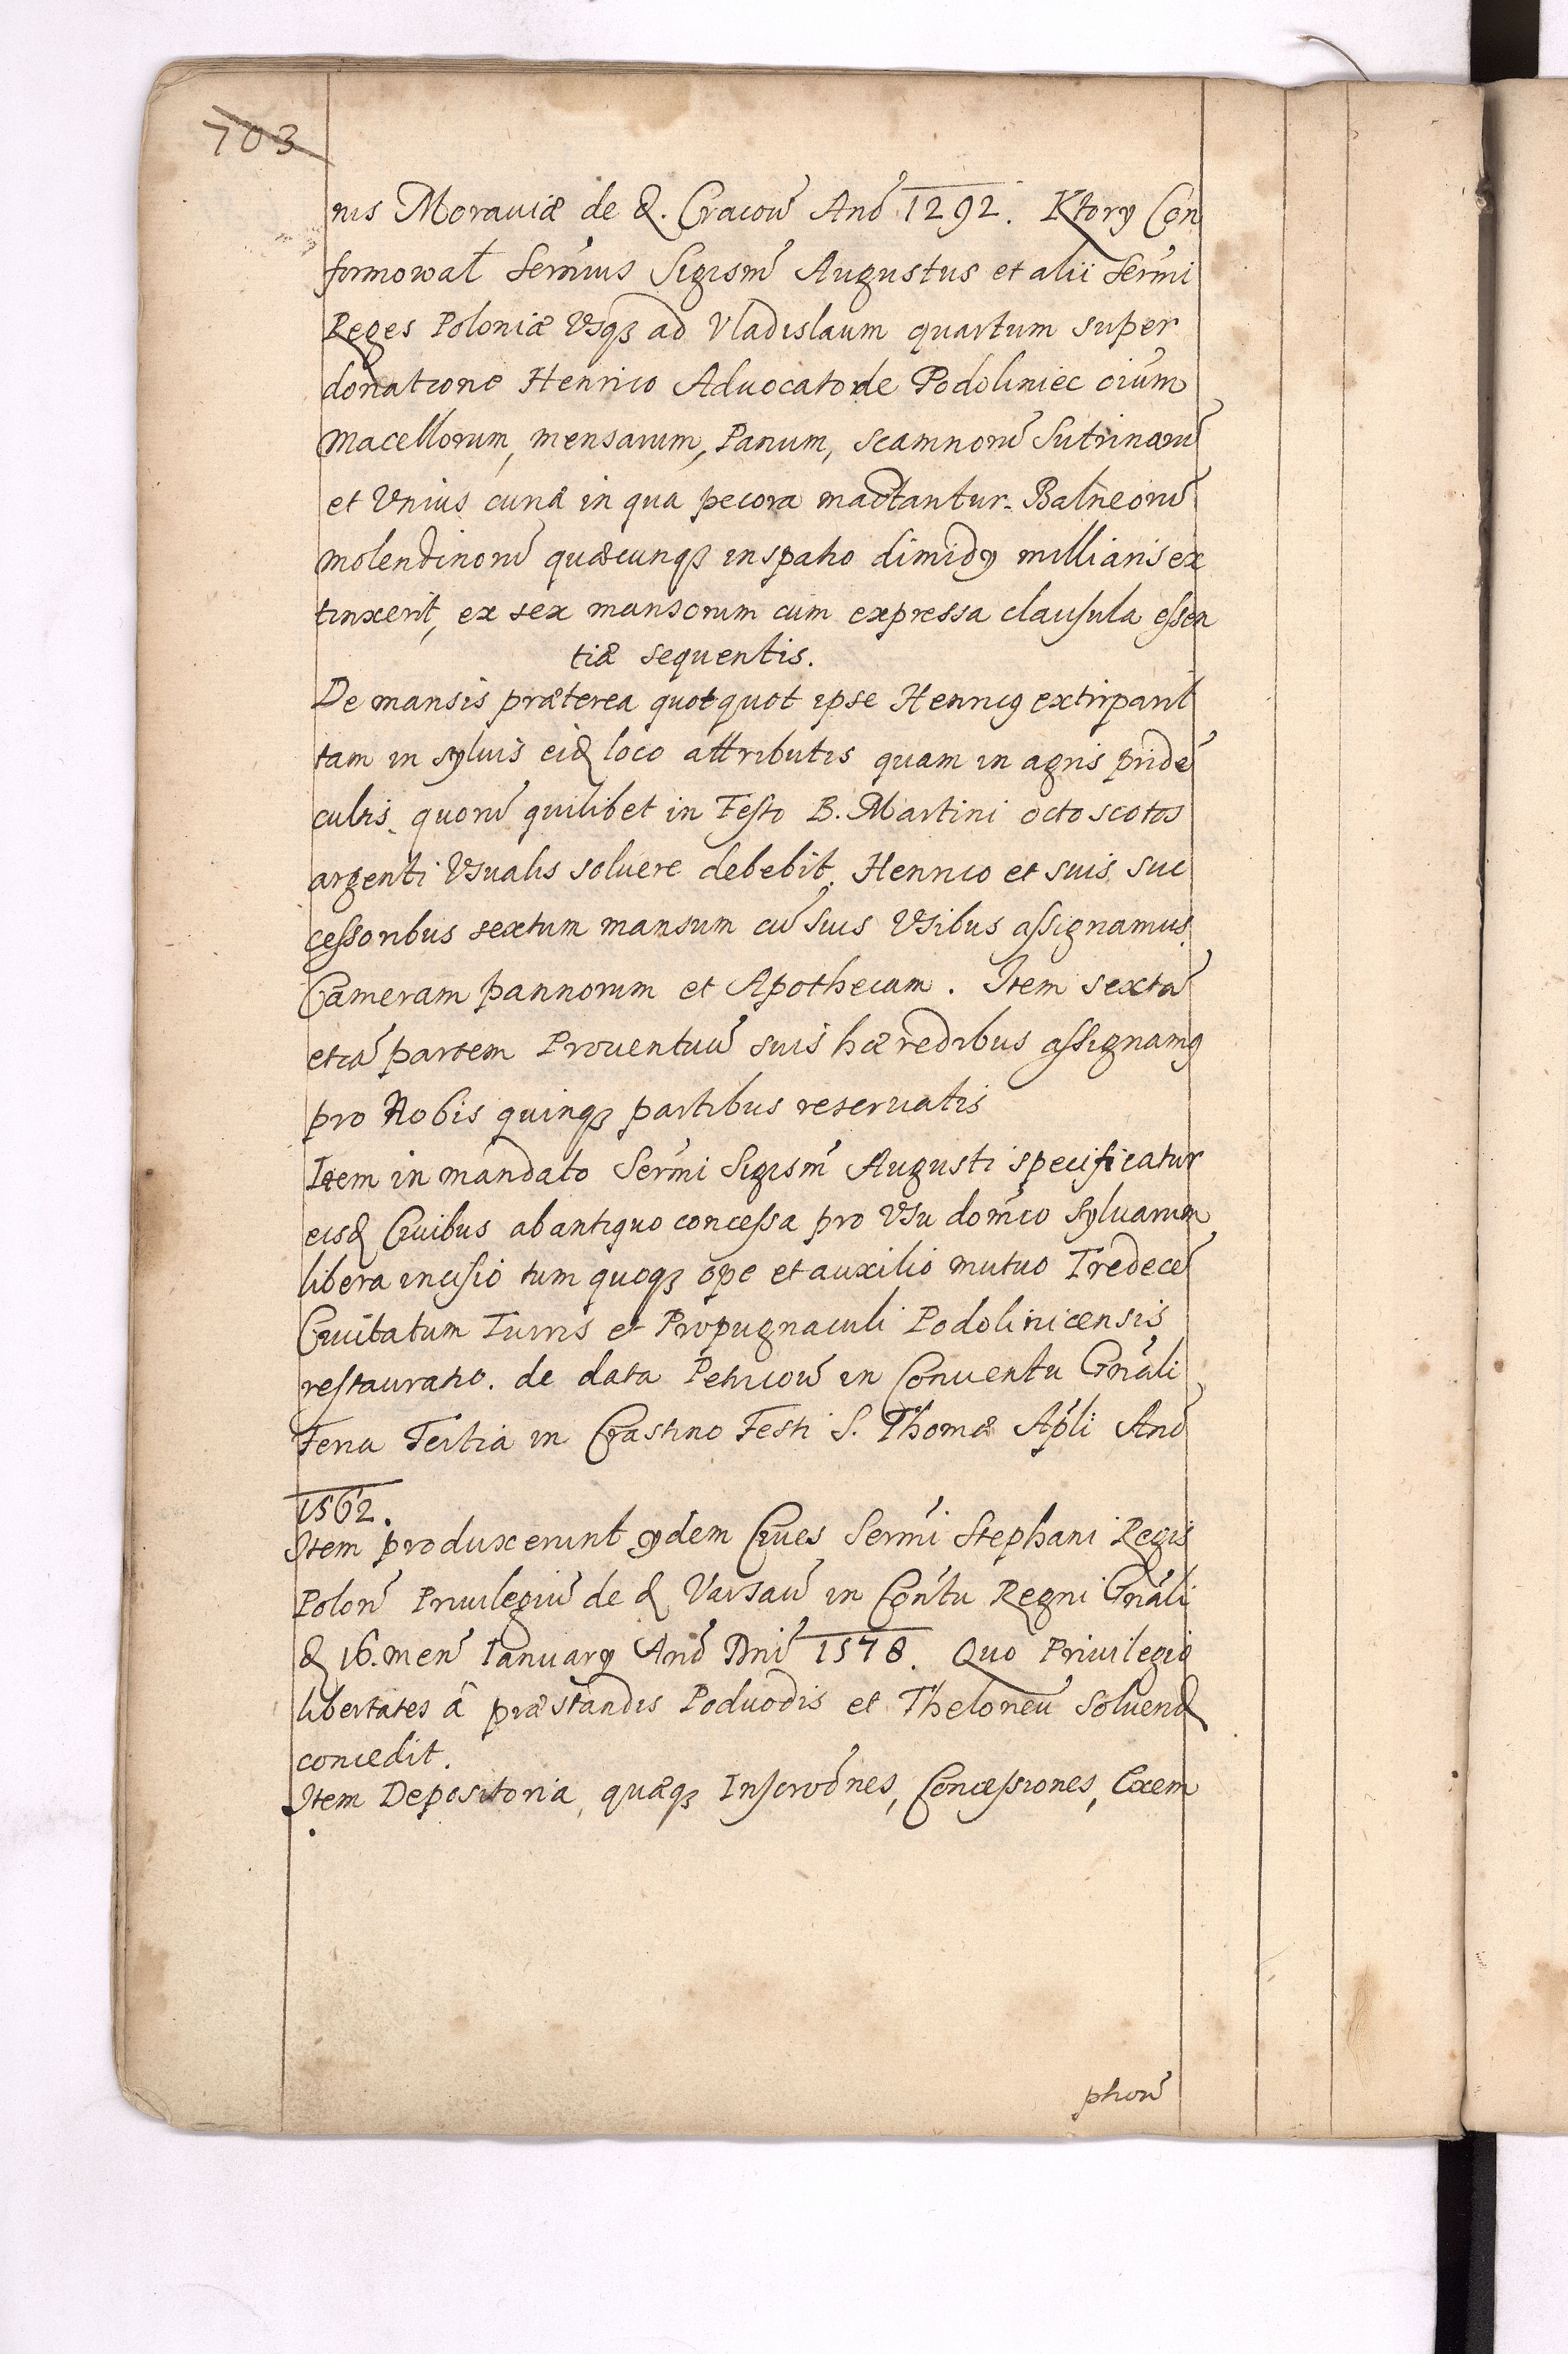 703
nis Moraviæ de d. Cracoū Anō 1292. Ktory Con
formował Sermus Sigism Augustus et alii Sermi
Reges Poloniæ Vsqz ad Vladislaum quartum super
donatione Henrico Aduocato de Podoliniec oium
macellorum, mensarum, Panum, scamnorū Sutrinarū
et Vnius curiæ in qua pecora mactantur. Balneorū
molendinorū quæcunqz in spatio dimidy milliaris ex
tinxerit, ex sex mansorum cum expressa clausula essen
tiæ sequentis.
De mansis præterea quotquot ipse Henricq extirparit
tam in syluis eid loco attributis quam in agris pridē
cultis, quorū quilibet in Festo B. Martini octo scotos
argenti Vsualis soluere debebit, Henrico et suis suc
cessoribus sextum mansum cū suis Vsibus assignamus,
Cameram pannorum et Apothecam. Item sextā
etiā partem Prouentuū suis hæredibus assignamq
pro Nobis quinqz partibus reseruatis
Item in mandato Sermi Sigism Augusti specificatur
eisd Ciuibus ab antiquo concessa pro Vsu domco syluarum
libera incisio tum quoqz ope et auxilio mutuo Tredecē
Ciuitatum Turris et Propugnaculi Podolinicensis
restauratio. de data Petricoū in Conuentu Gnali
Feria Tertia in Crastino Festi S. Thomæ Apli Anō
1562.
Item produxerunt ydem Ciues Sermi Stephani Regis
Polon Priuilegiū de d Varsaū in Contu Regni Gnali
d 16. men Ianuary Anō Dni 1578. Quo Priuilegio
libertates â præstandis Poduodis et Theloneū soluend
concedit.
Item Depositoria, quæqz Inscrōnes, Concessiones, Exem
phorū